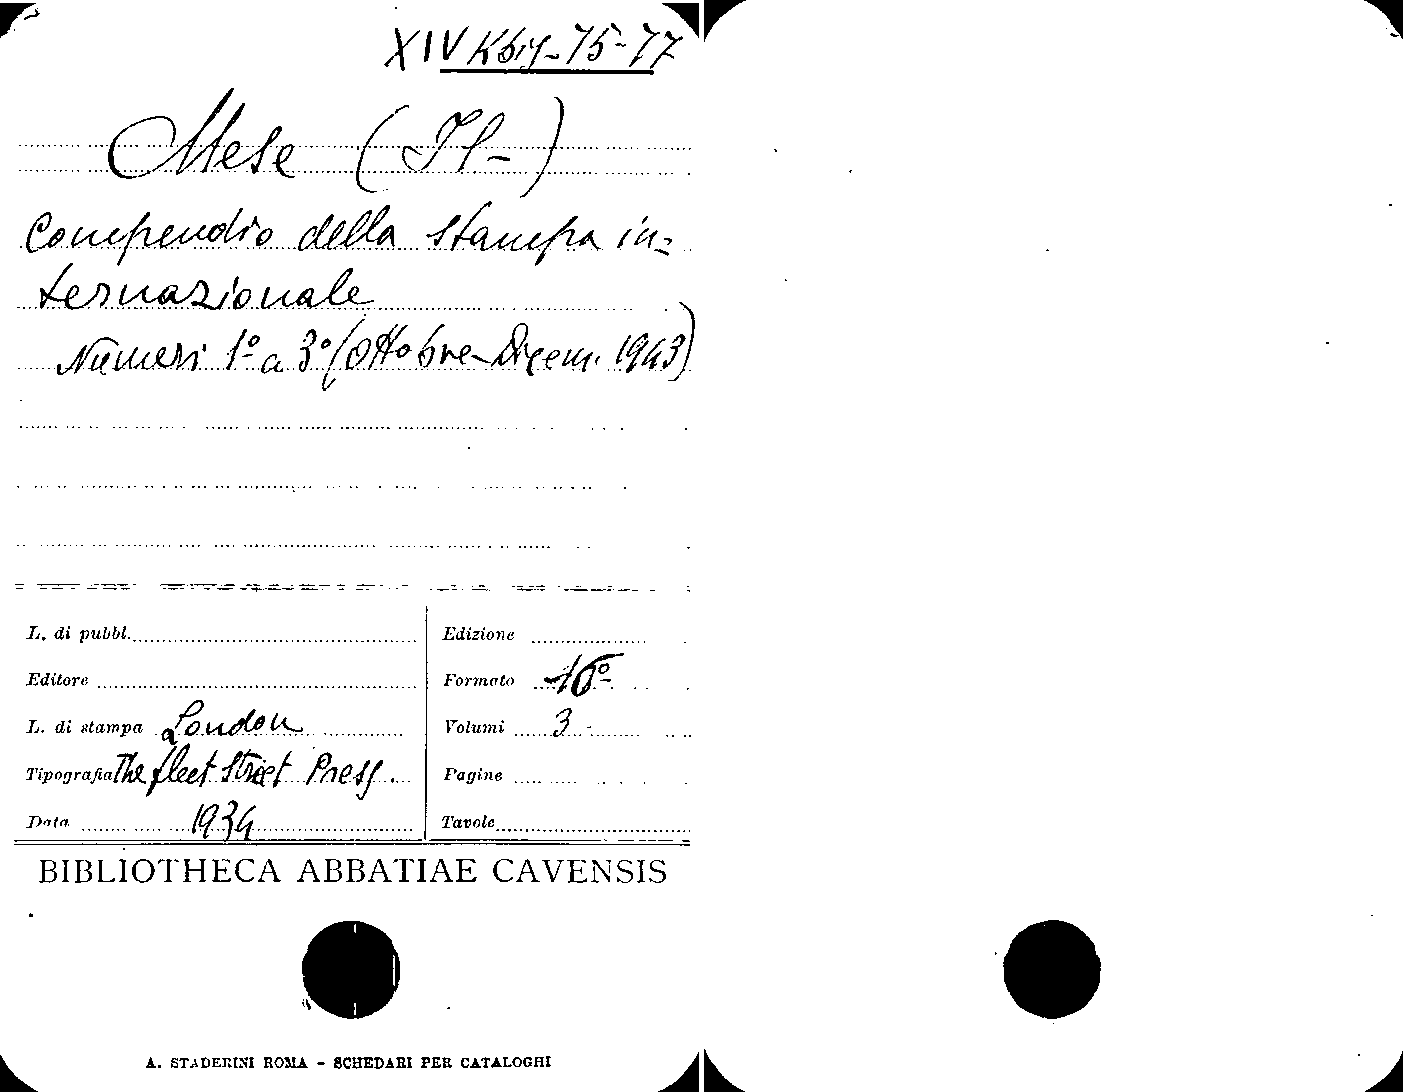 XIV Kbis-75-77
Mese (Il-)
Compendio della stampa in=
ternazionale
Numeri 1º a 3º (Ottobre-Dicem. 1943)
L. di pubbl.
Edizione
Editore
Formato 16º
L. di stampa London
Volumi 3-
Tipografia The fleet Street Press.
Pagine
Data 1934
Tavole
BIBLIOTHECA ABBATIAE CAVENSIS
A. STADERINI ROMA - SCHEDARI PER CATALOGHI